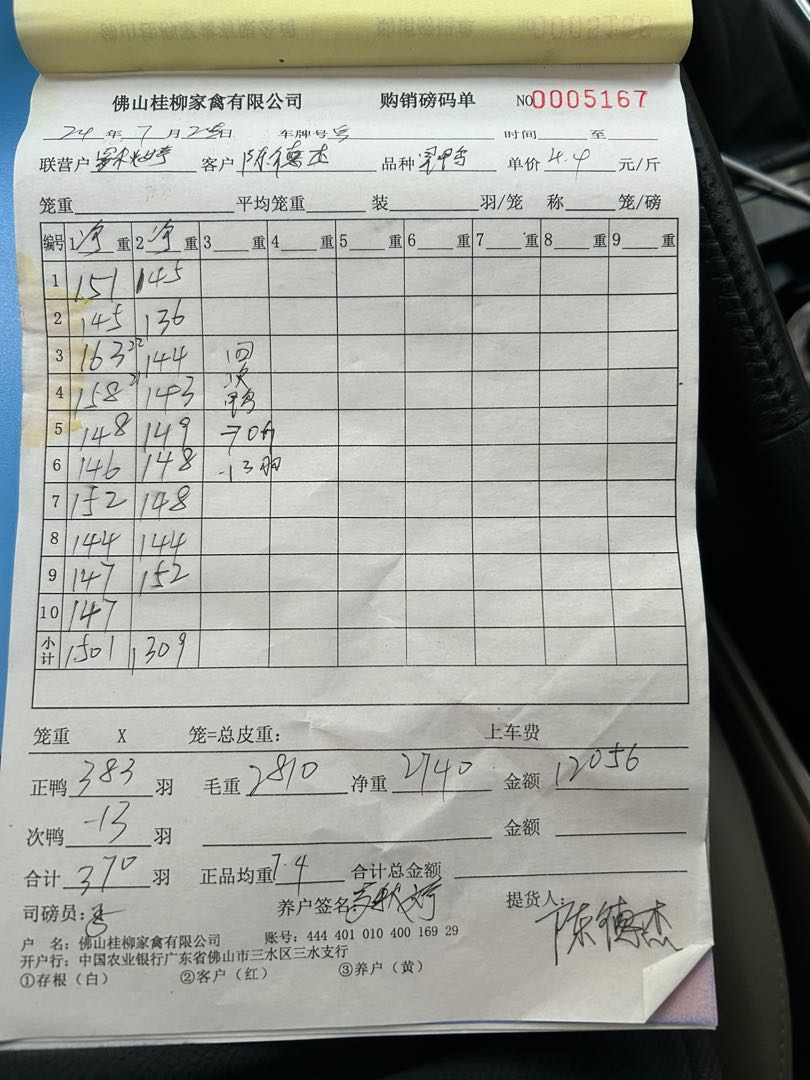 佛山桂柳家禽有限公司 购销磅码单 NO0005167
24年7月 日 车牌号 时间 至
联营户 客户 陈德杰 品种 单价 4.4 元/斤
笼重 平均笼重 装 羽/笼 称 笼/磅
编号 1 净 重 2 净 重 3 重 4 重 5 重 6 重 7 重 8 重 9 重
1 151 145
2 145 136
3 163 22 144 回
4 158 21 143 次鸭
5 148 149 -70斤
6 146 148 -13羽
7 152 148
8 144 144
9 147 152
10 147
小计 1501 1309
笼重 X 笼=总皮重: 上车费
正鸭 383 羽 毛重 2810 净重 2740 金额 12056
次鸭 -13 羽 金额
合计 370 羽 正品均重 7.4 合计总金额
司磅员: 养户签名 提货人: 陈德杰
户 名: 佛山桂柳家禽有限公司 账号: 444 401 010 400 169 29
开户行: 中国农业银行广东省佛山市三水区三水支行
①存根(白) ②客户(红) ③养户(黄)